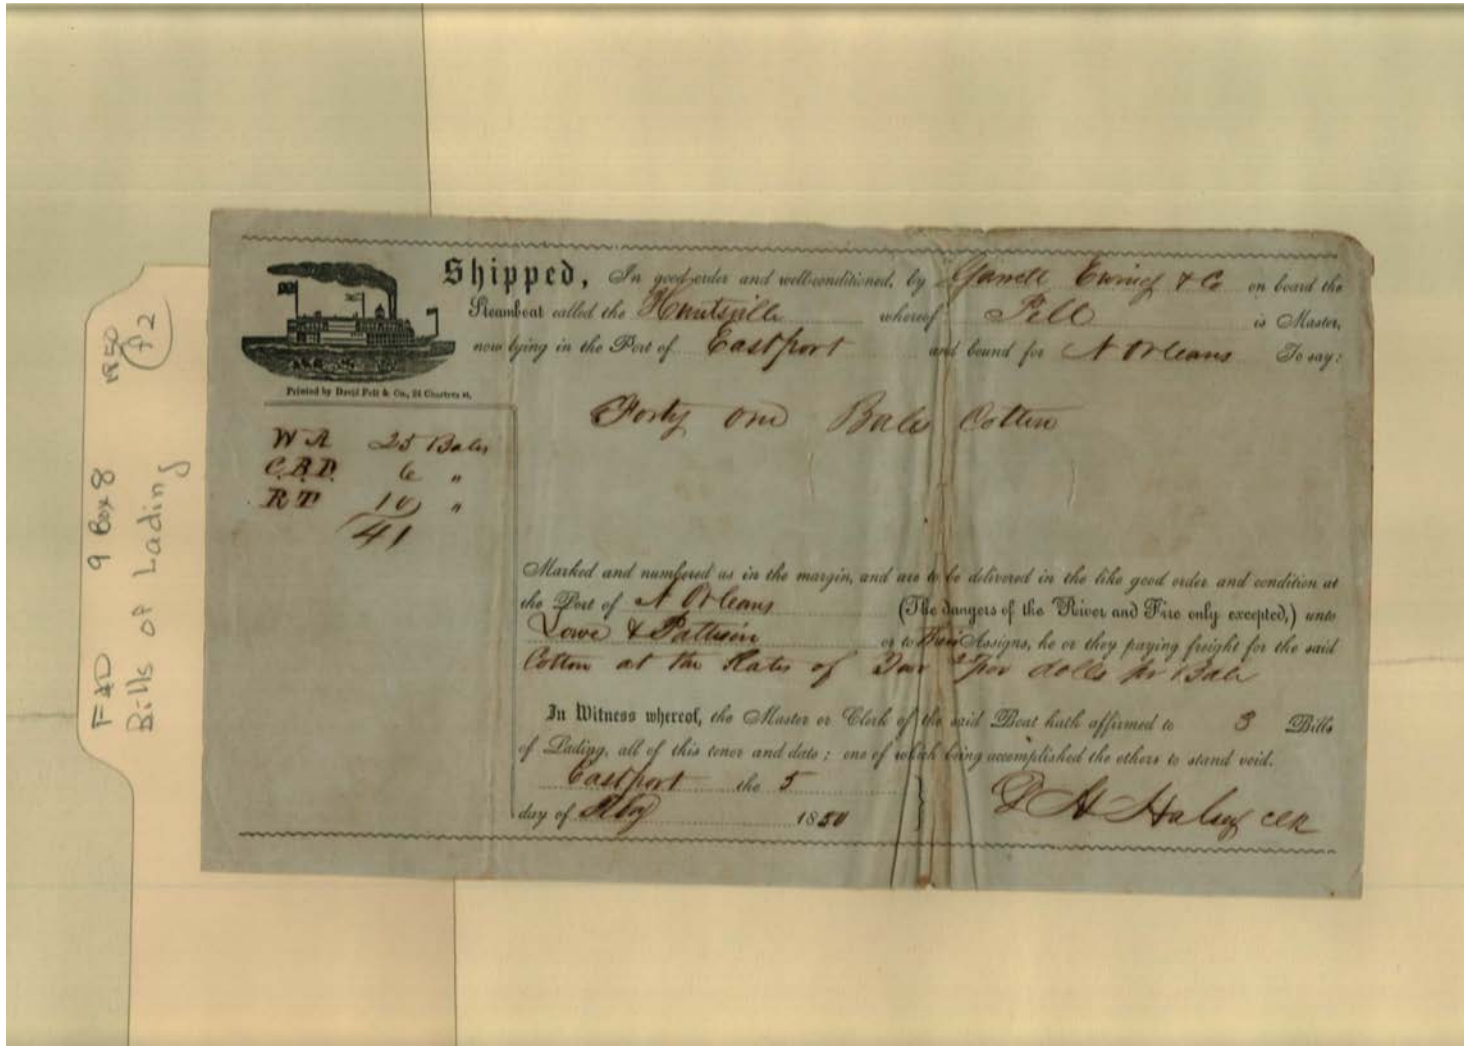 Shipped, In good order and well-conditioned, by & Co on board the
Steamboat called the Huntsville whereof Pell is Master,
now lying in the Port of Eastport and bound for N Orleans To say:
Printed by David Felt & Co., 24 Chartres st.
Forty one Bales Cotton
W A 25 Bales
C.B.D. 6 "
R T 10 "
41
Marked and numbered as in the margin, and are to be delivered in the like good order and condition at
the Port of N Orleans (The dangers of the River and Fire only excepted,) unto
Lowe & Pattison or to Their Assigns, he or they paying freight for the said
Cotton at the Rates of dolls pr Bale
In Witness whereof, the Master or Clerk of the said Boat hath affirmed to 3 Bills
of Lading, all of this tenor and date; one of which being accomplished the others to stand void.
Eastport the 5
day of 1850
H Halsey Clk
F&D 9 Box 8 1850
Bills of Lading f2